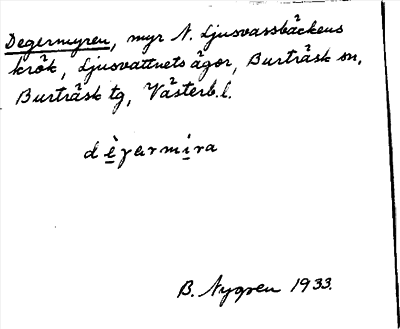 Degermyren, myr N. Ljusvassbäckens
krök, Ljusvattnets ägor, Burträsk sn,
Burträsk tg, Västerb.l.
dègarmira
B. Nygren 1933.